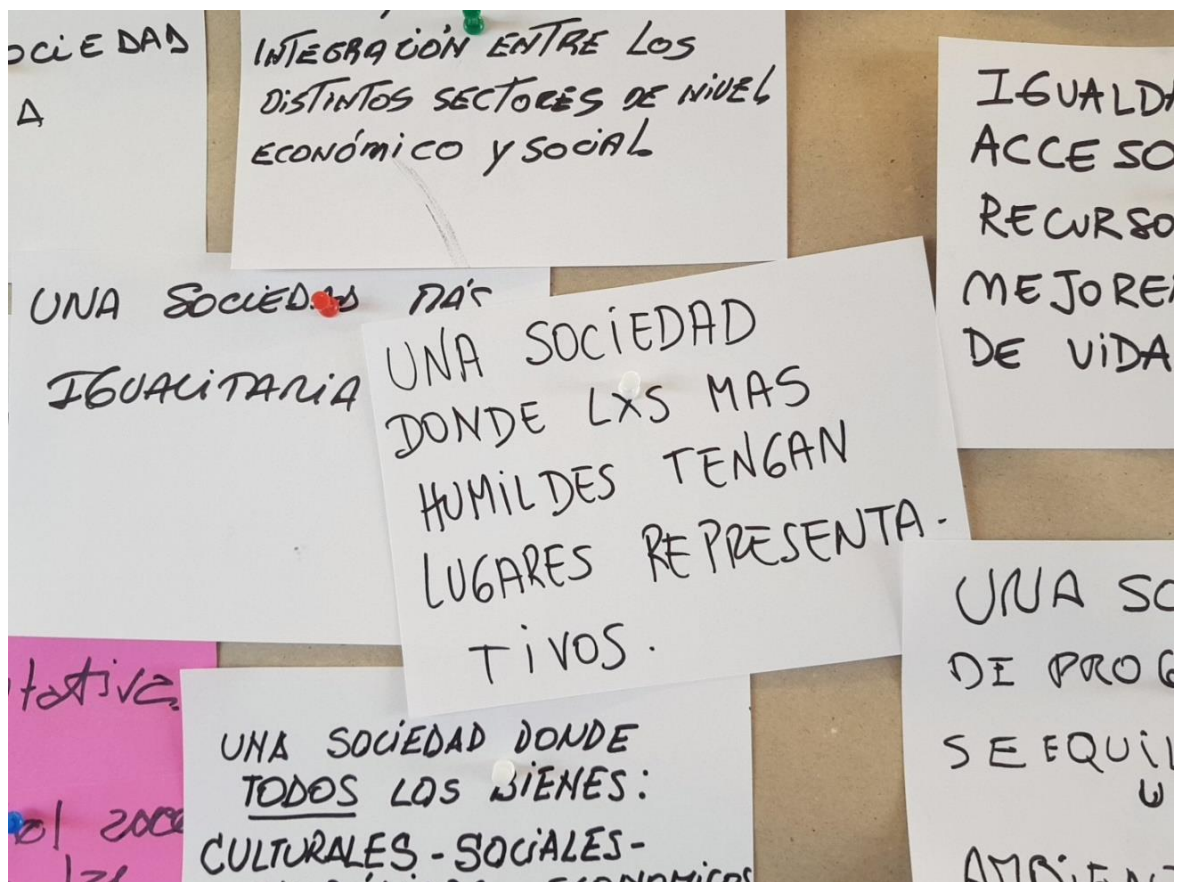 OCIEDAD
A
INTEGRACIÓN ENTRE LOS
DISTINTOS SECTORES DE NIVEL
ECONÓMICO Y SOCIAL
IGUALDA
ACCESO
RECURSO
MEJORE
DE VIDA
UNA SOCIEDAD MÁS
IGUALITARIA
UNA SOCIEDAD
DONDE LXS MAS
HUMILDES TENGAN
LUGARES REPRESENTA-
TIVOS.
tativa
UNA SOCIEDAD DONDE
TODOS LOS BIENES:
CULTURALES - SOCIALES -
ECONOMICOS
UNA SO
DE PROG
SE EQUIL
AMBIENT